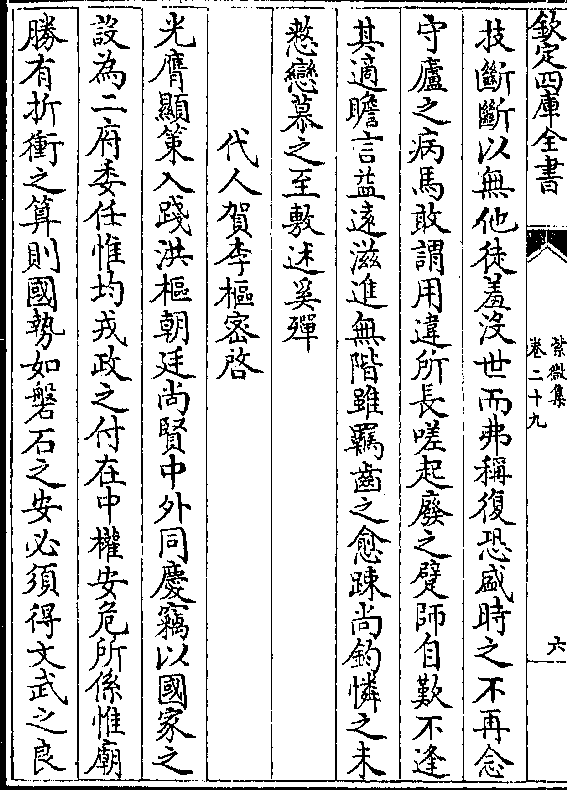 欽定四庫全書
紫微集
卷二十九
六
技斷斷以無他徒羞没世而弗稱復恐盛時之不再念
守廬之病馬敢謂用違所長嗟起廢之躄師自歎不逢
其適瞻言益遠滋進無階雖羈齒之愈踈尚鈞憐之未
憖戀慕之至敷述奚殫
代人賀李樞密啓
光膺顯策入踐洪樞朝廷尚賢中外同慶竊以國家之
設為二府委任惟均戎政之付在中權安危所係惟廟
勝有折衝之算則國勢如磐石之安必須得文武之良